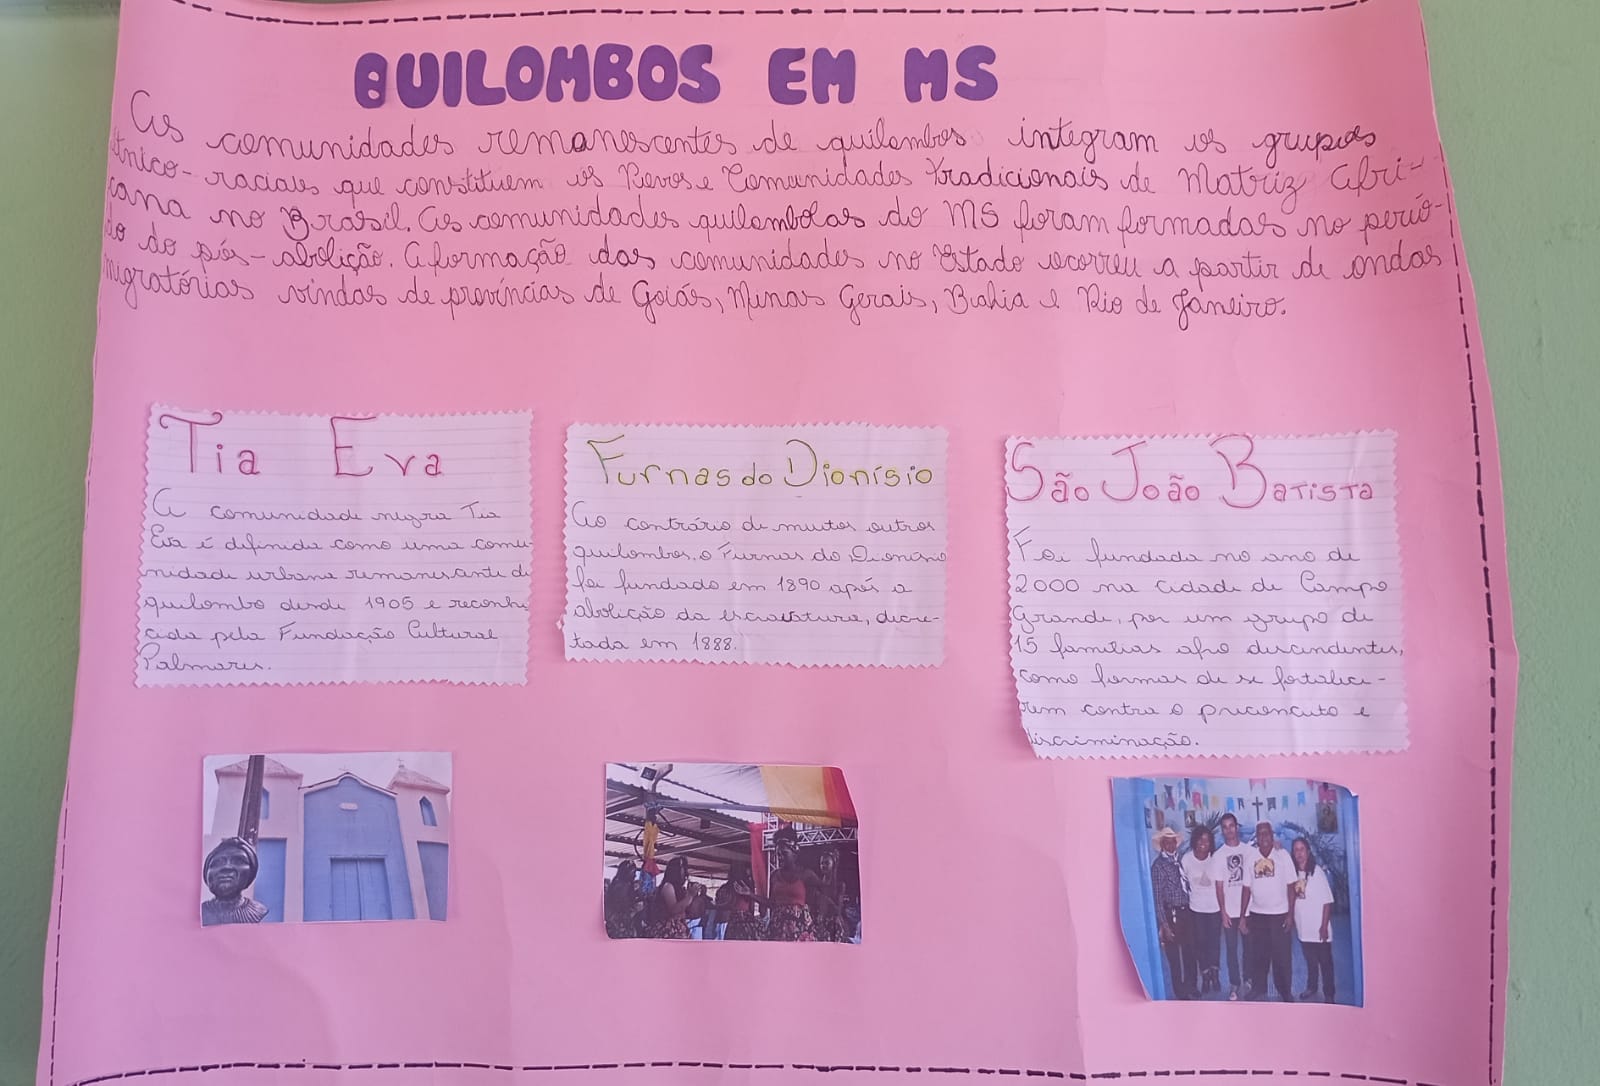 QUILOMBOS EM MS
As comunidades remanescentes de quilombos integram os grupos
étnico-raciais que constituem os Povos e Comunidades Tradicionais de Matriz Afri-
cana no Brasil. As comunidades quilombolas do MS foram formadas no perío-
do do pós-abolição. A formação das comunidades no Estado ocorreu a partir de ondas
migratórias vindas de províncias de Goiás, Minas Gerais, Bahia e Rio de Janeiro.
Tia Eva
A comunidade negra Tia
Eva é definida como uma comu-
nidade urbana remanescente de
quilombo desde 1905 e reconhe
cida pela Fundação Cultural
Palmares.
Furnas do Dionísio
Ao contrário de muitos outros
quilombos, o Furnas do Dionísio
foi fundado em 1890 após a
abolição da escravatura, decre-
tada em 1888.
São João Batista
Foi fundada no ano de
2000 na cidade de Campo
Grande, por um grupo de
15 famílias afro descendentes,
como formas de se fortalece-
rem contra o preconceito e
discriminação.